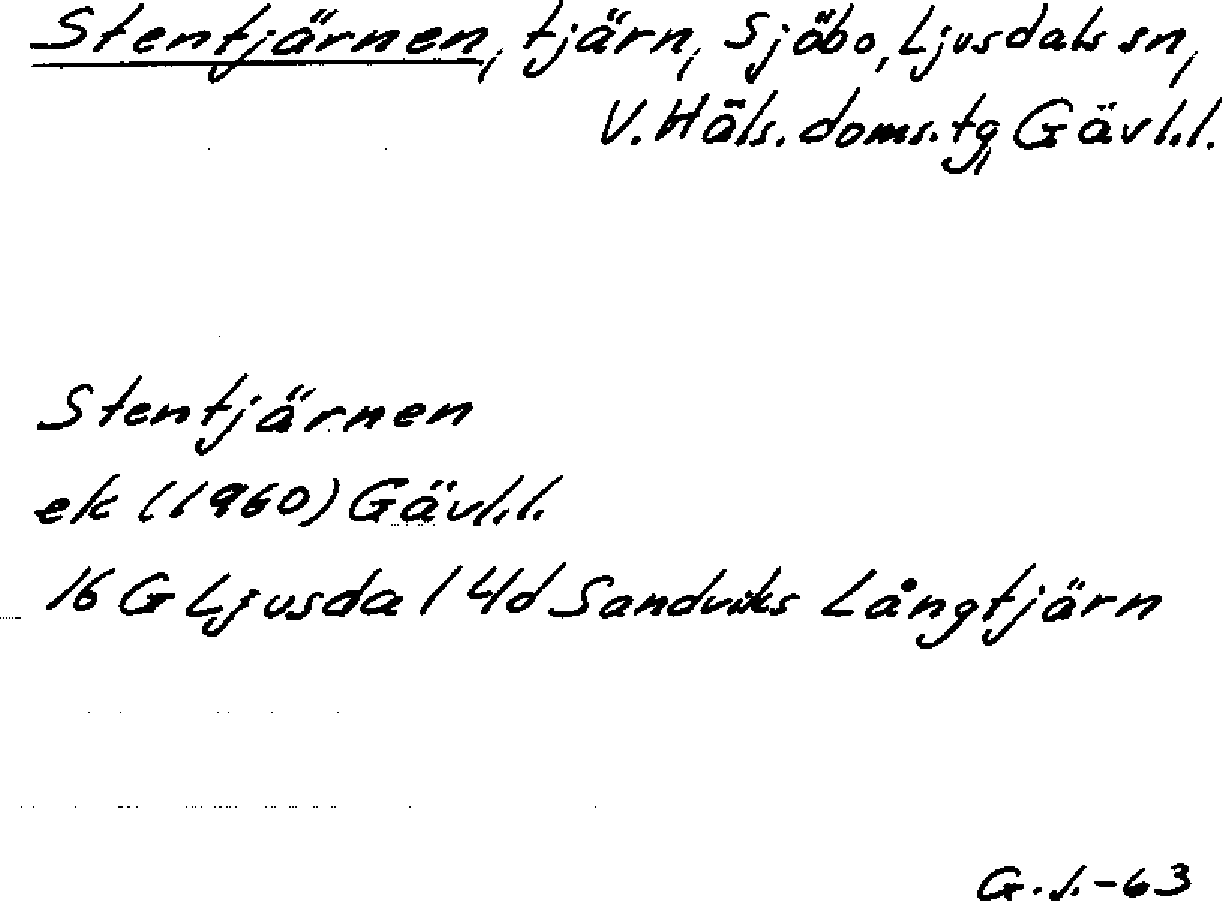 Stentjärnen, tjärn, Sjöbo, Ljusdals sn,
V. Häls. doms. tg, Gävl.l.
Stentjärnen
ek (1960) Gävl.l.
16 G Ljusdal 4d Sandviks Långtjärn
G.J.-63